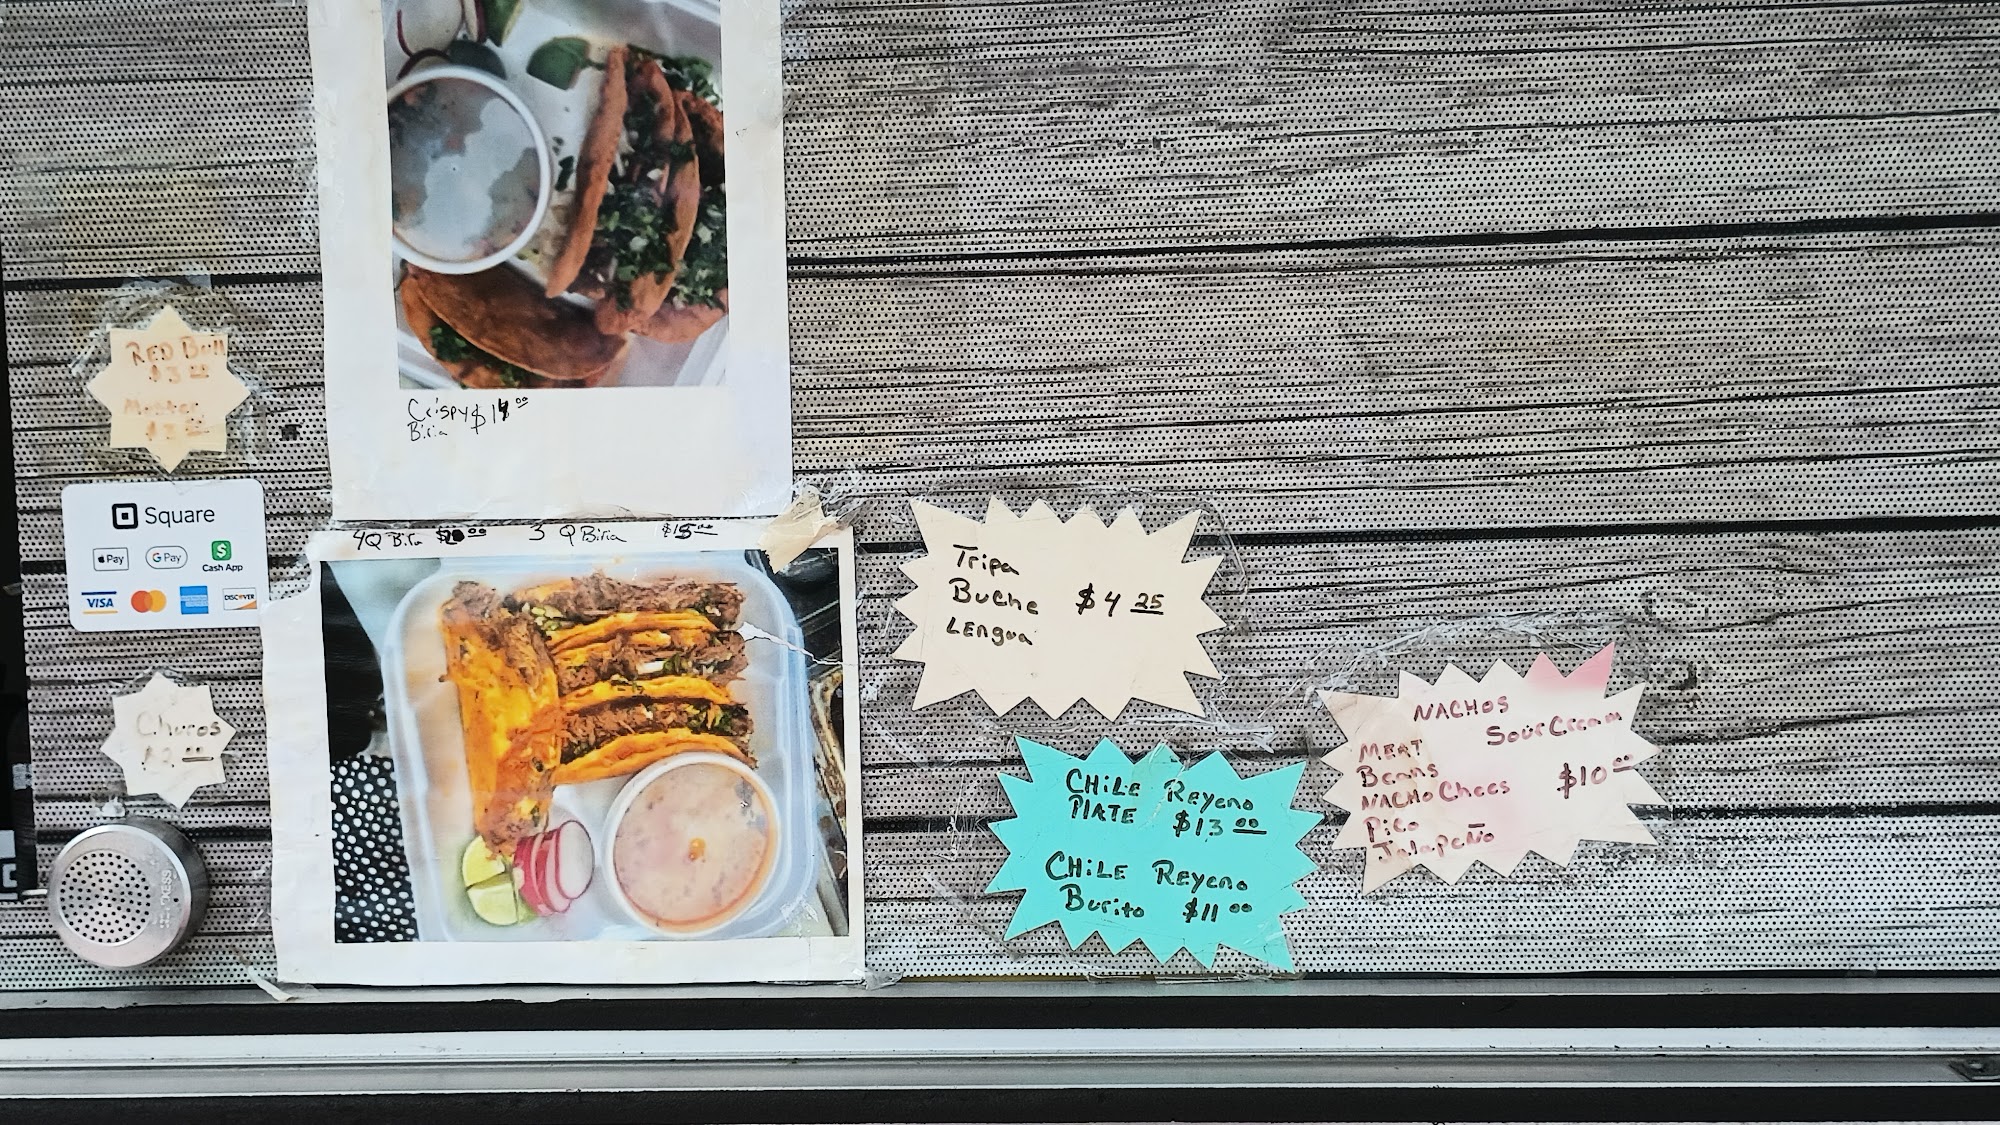 RED Bull
$3.00
Monster
Crispy $14.00
Biria
Square
Pay
G Pay
Cash App
VISA
AMERICAN EXPRESS
DISCOVER
4Q Biria $20.00 3 Q Biria $15.00
Churos
$2.00
Tripa
Buche $4.25
LEngua
CHiLe Reyeno
PlATE $13.00
CHiLE Reyeno
Burito $11.00
NACHOS
Sour Cream
MEAT
Beans
NACHO Chees $10.00
Pico
Jalapeño